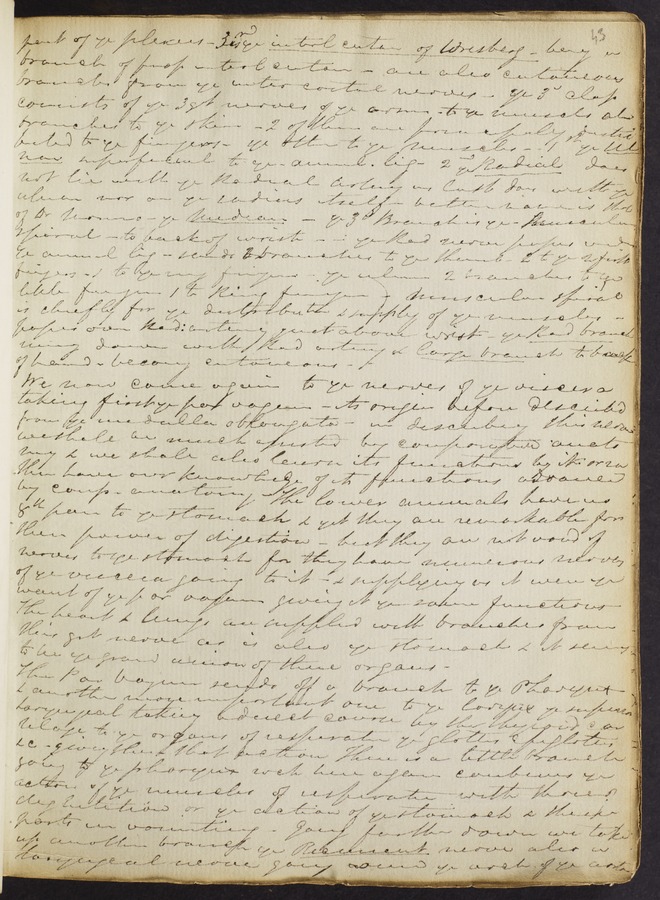 43
part of ye plexus - 3rd is ye internl cutan of Wrisberg - being a
branch of a internl cutan - are also cutaneous
branches from ye inter costal nerves - ye 3d class
consists of ye 3 gt nerves of ye arm - to ye muscels also
branches to ye skin - 2 of them are principaly distri
buted to ye fingers - ye other to ye muscels - 1 ye Ul
nar superficial to ye annul. lig - 2 ye Radial does
not lie with ye Radial artery as last does with ye
ulnar nor on ye radius itself - better name is that
of Dr Monro - ye Median - ye 3d Branch is ye Muscular
Spiral - to back of wrist - ye Rad nerve passes under
ye annul lig - sends 2 branches to ye thumb - 2 to ye
fingers - to ye fingers - ye ulnar 2 branches to ye
little finger 1 to Ring finger - Muscular spiral
is chiefly for ye distribution & supply of ye muscles -
passes over Rad artery just above wrist - ye Rad branch
runing down with Rad artery & large branch to back
of hand - becomg cutaneous -
We now come again to ye nerves of ye viscera
taking first ye par vagum - its origin before described
from ye medulla oblongata - in describing this nerve
we shall be much assisted by comparative anato
my & we shall also learn its functions by it or ra
ther have our knowledge of its functions advanced
by comp - anatomy. The lower animals have no
gt par to ye stomach & yet they are remarkable for
their power of digestion - but they are not void of
nerves to ye stomach for they have numerous nerves
of ye viscera going to it - & supplying as it were ye
want of ye par vagum giving it ye same functions -
The heart & lungs are supplied with branches from
this gt nerve as is also ye stomach & it seems
to be ye grand union of these organs -
The Par Vagum sends off a branch to ye Pharynx
& another more important one to ye larynx ye superior
laryngeal taking a direct course by the thyroid car
tilage to ye organs of respiratn ye glottis epiglottis
&c - giving them that action There is a little branch
going to ye pharynx wch here again combines ye
action of ye muscles of respiratn with those of
deglutition or ye action of ye stomach & these
parts in vomiting - Going further down we take
up another branch ye Recurrent nerve also a
laryngeal nerve going round ye arch of ye aorta